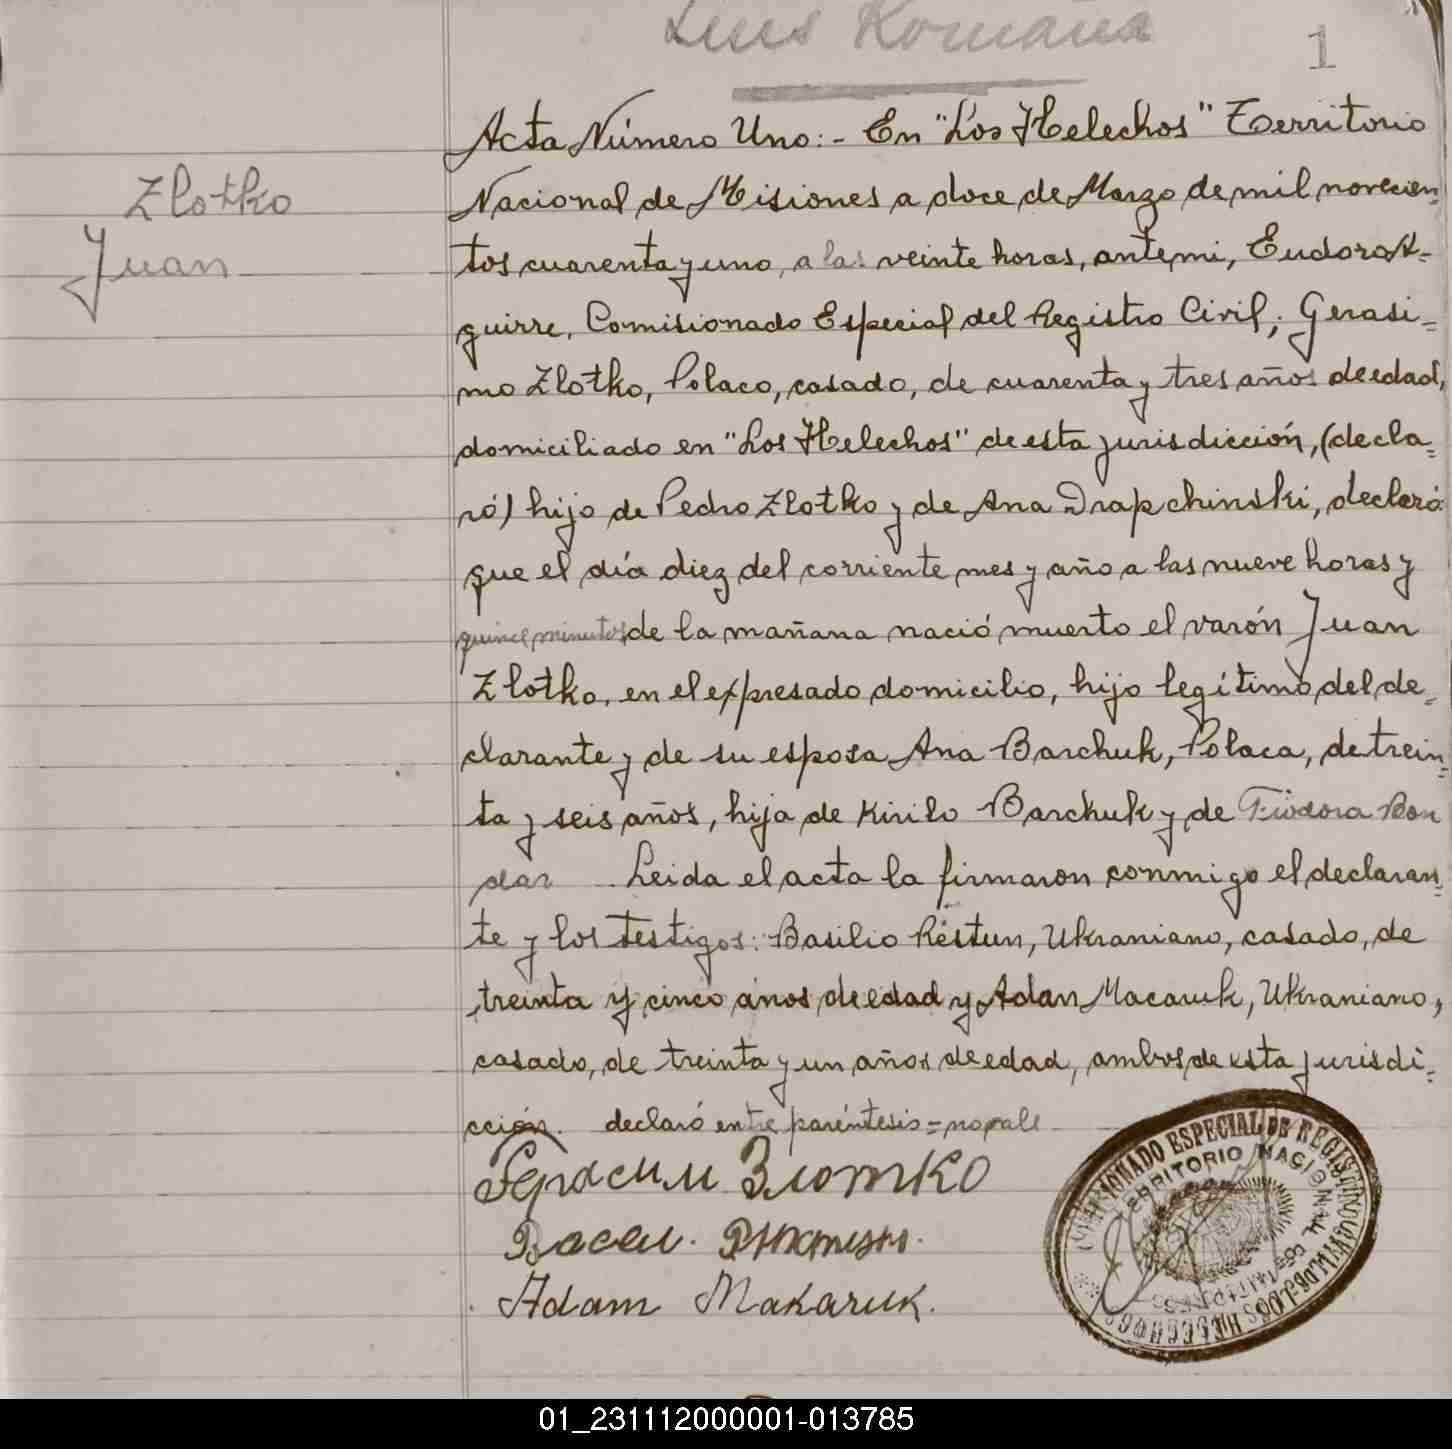 Luis Romaña
1
Zlotko
Juan
Acta Número Uno:- En "Los Helechos" Territorio
Nacional de Misiones a doce de Marzo de mil novecien=
tos cuarenta y uno, a las veinte horas, ante mi, Eudoro A=
guirre, Comisionado Especial del Registro Civil; Gerasi=
mo Zlotko, Polaco, casado, de cuarenta y tres años de edad,
domiciliado en "Los Helechos" de esta jurisdicción, (decla=
ró) hijo de Pedro Zlotko y de Ana Drapchinski, declaró
que el día diez del corriente mes y año a las nueve horas y
quince minutos de la mañana nació muerto el varón Juan
Zlotko, en el expresado domicilio, hijo legítimo del de=
clarante y de su esposa Ana Barchuk, Polaca, de trein=
ta y seis años, hija de Kirilo Barchuk y de Fiodora Bon
dar Leida el acta la firmaron conmigo el declaran=
te y los testigos: Basilio Réstun, Ukraniano, casado, de
treinta y cinco años de edad y Adan Macaruk, Ukraniano,
casado, de treinta y un años de edad, ambos de esta jurisdi=
cción. declaró entre paréntesis = no vale
Герасим Злотко
Васел.
Adam Makaruk.
COMISIONADO ESPECIAL DE REGISTRO CIVIL
TERRITORIO NACIONAL DE MISIONES
LOS HELECHOS
01_231112000001-013785